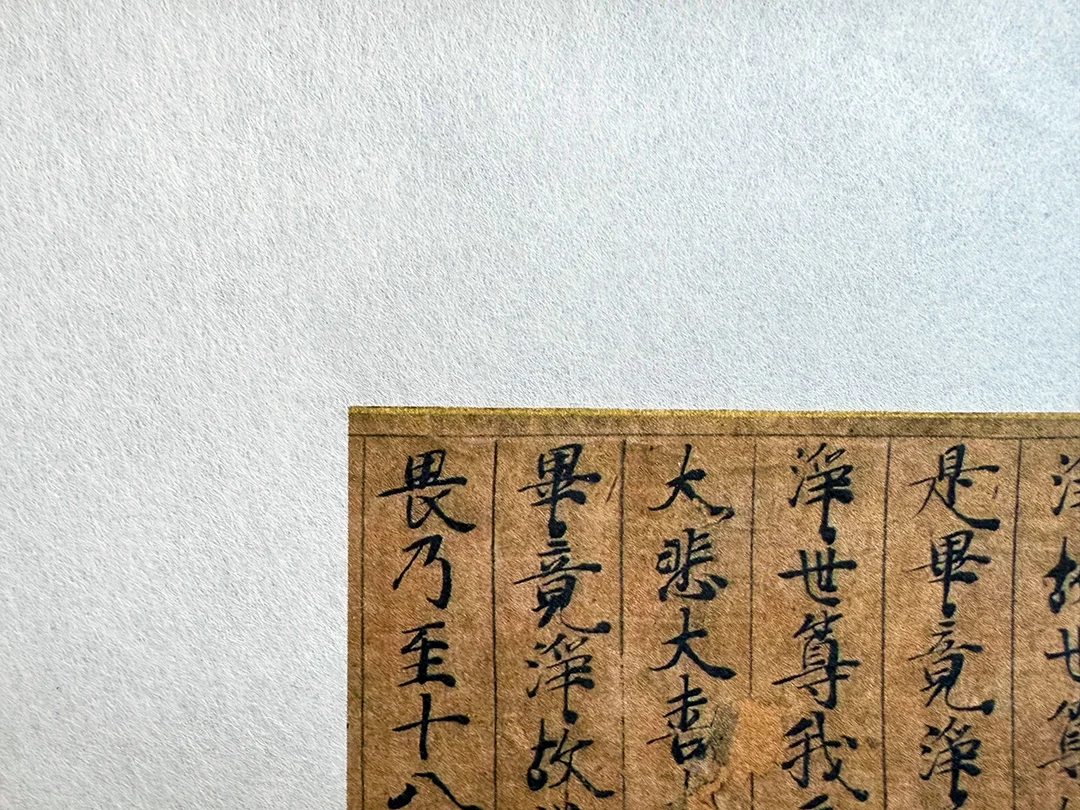 淨故世尊
是畢竟淨
淨世尊我
大悲大喜
畢竟淨故
畏乃至十八